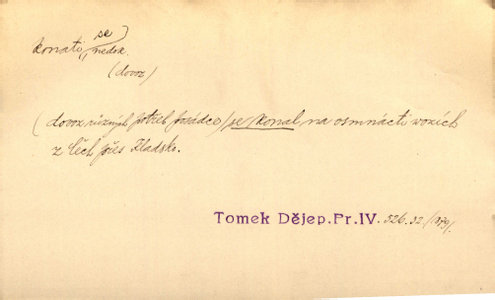 konati se nedok.
(dovoz)
(dovoz různých potřeb posádce) se konal na osmnácti vozích
z Čech přes Kladsko.
Tomek Dějep. Pr. IV. 526.32/1879/.